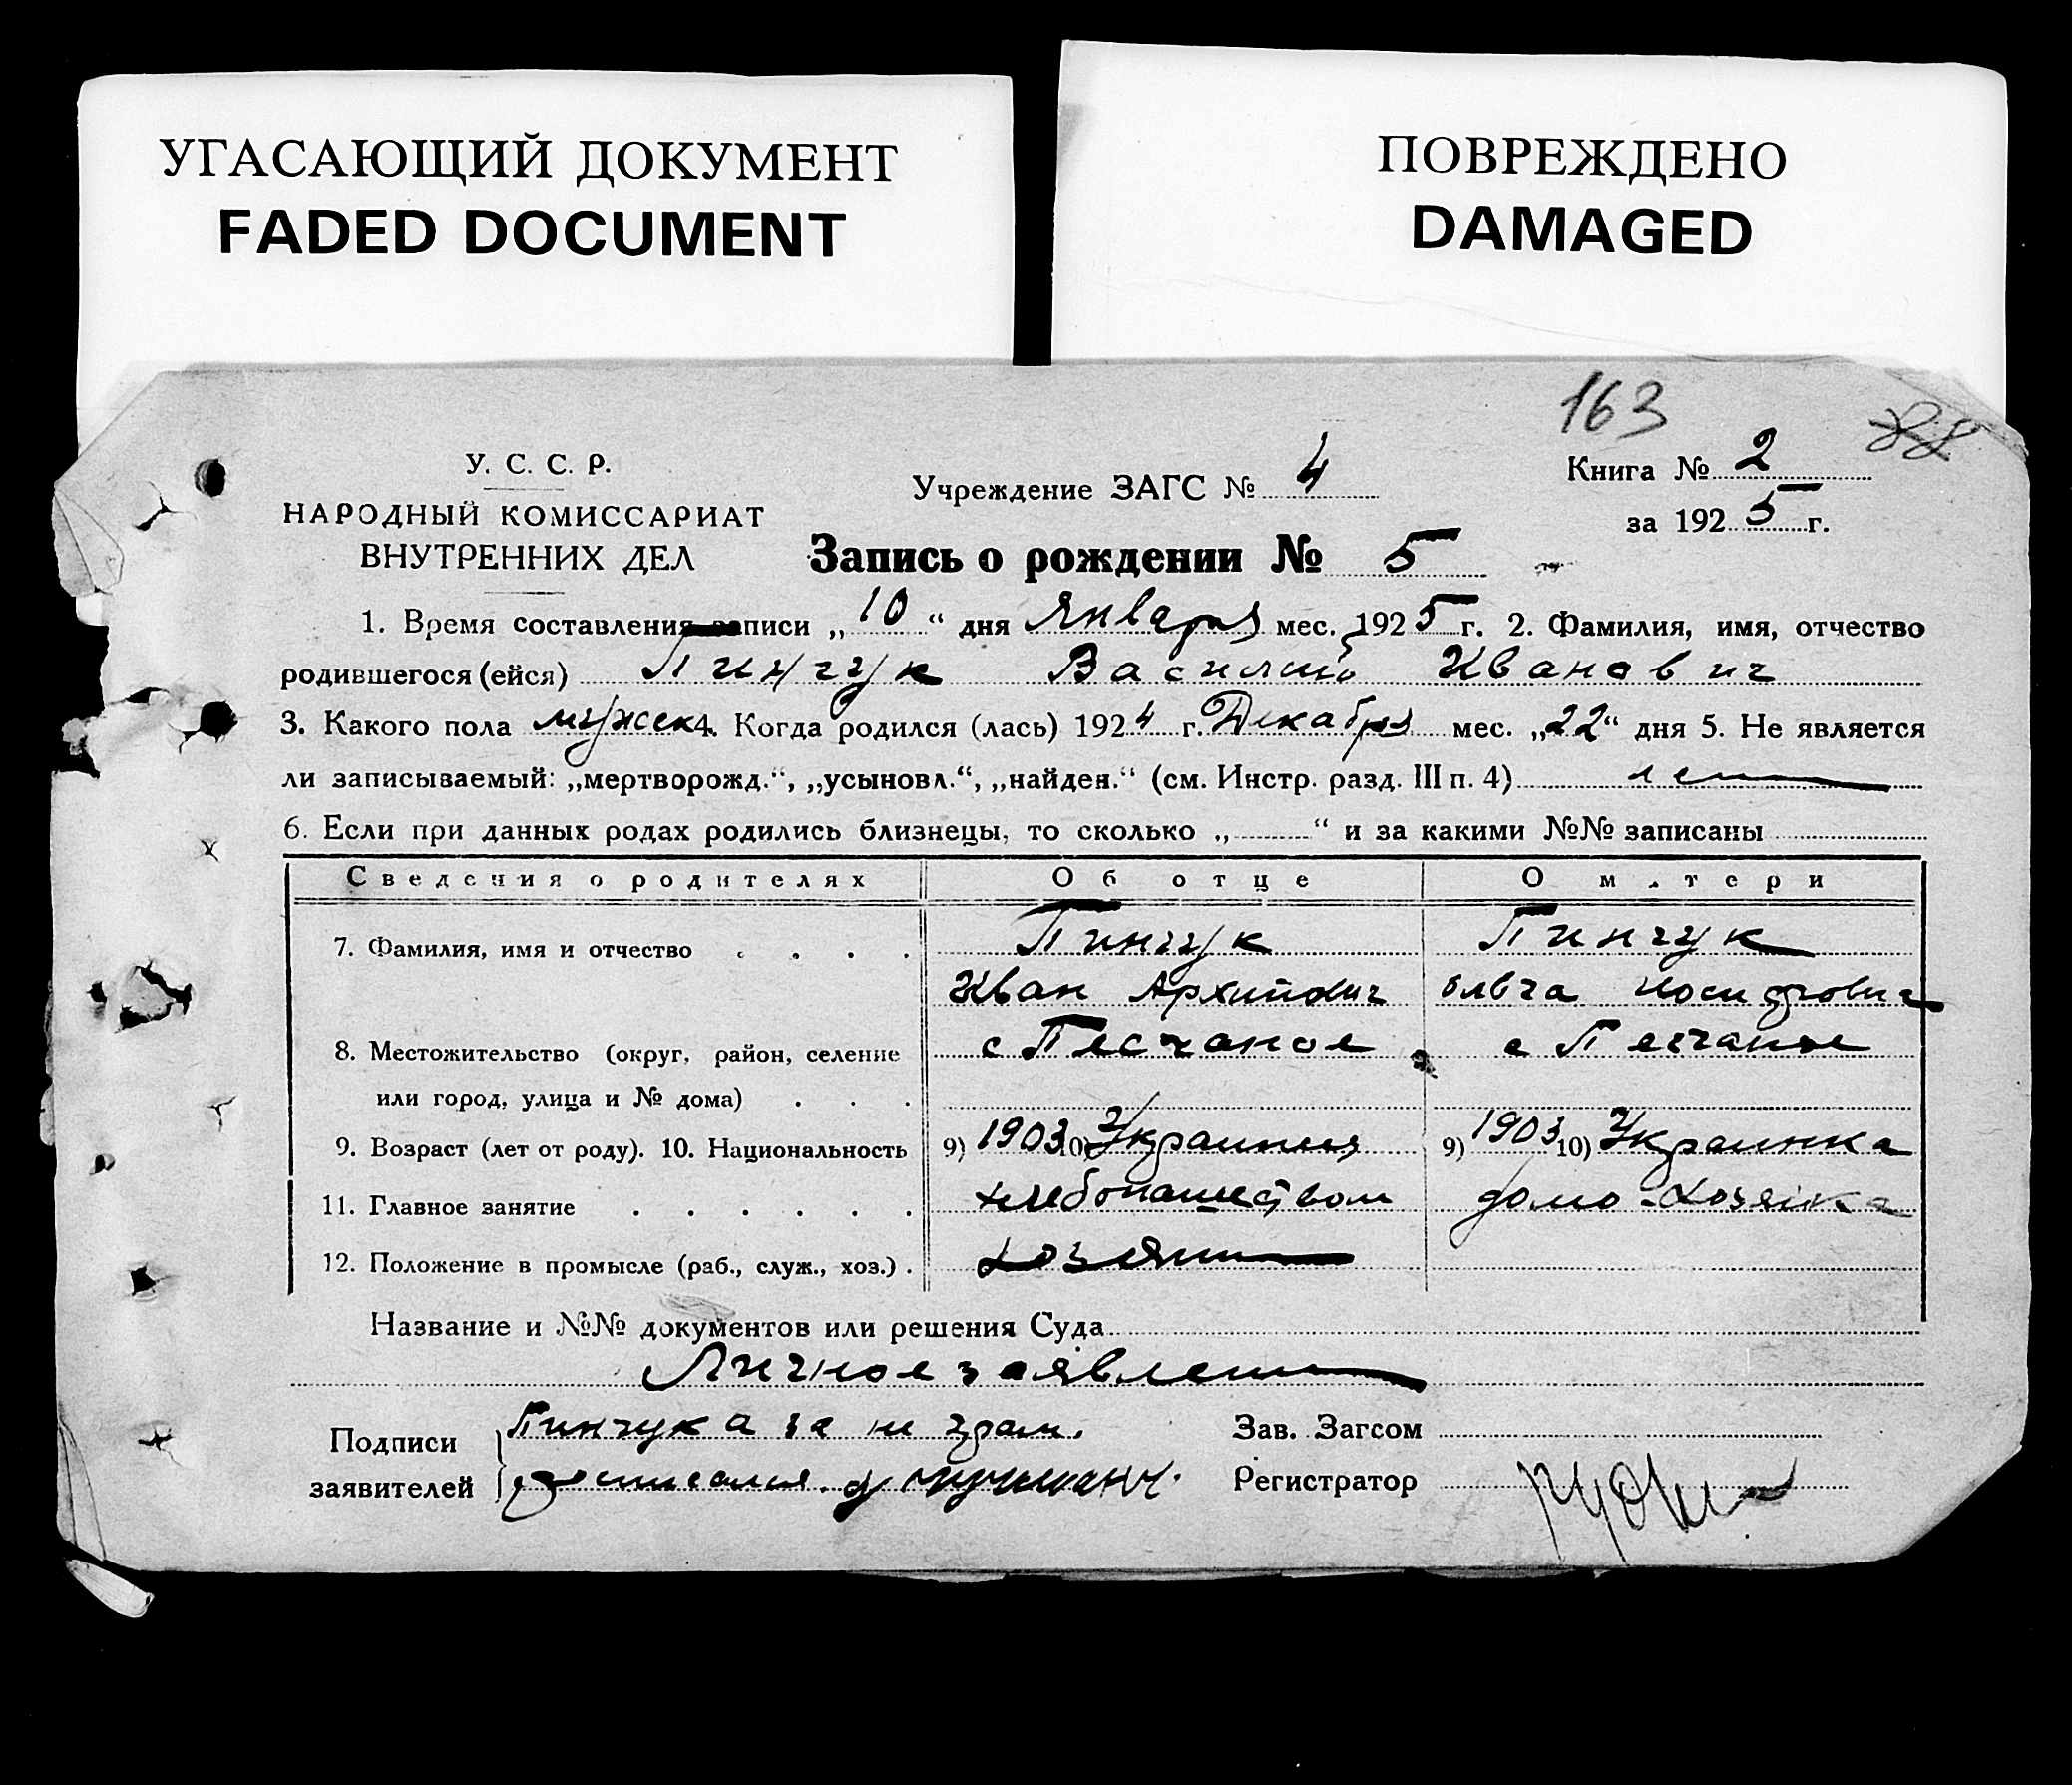 УГАСАЮЩИЙ ДОКУМЕНТ
FADED DOCUMENT
ПОВРЕЖДЕНО
DAMAGED
163
У. С. С. Р.
НАРОДНЫЙ КОМИССАРИАТ
ВНУТРЕННИХ ДЕЛ
Учреждение ЗАГС № 4
Книга № 2
за 1925 г.
Запись о рождении № 5
1. Время составления записи „10“ дня Января мес. 1925 г. 2. Фамилия, имя, отчество
родившегося (ейся) Пинчук Василий Иванович
3. Какого пола мужск 4. Когда родился (лась) 1924 г. Декабря мес. „22“ дня 5. Не является
ли записываемый: „мертворожд.“, „усыновл.“, „найден.“ (см. Инстр. разд. III п. 4)
6. Если при данных родах родились близнецы, то сколько „ “ и за какими №№ записаны
Сведения о родителях Об отце О матери
7. Фамилия, имя и отчество . . . . Пинчук Пинчук
Иван Архипович Ольга
8. Местожительство (округ, район, селение с Песчаное с Песчаное
или город, улица и № дома) . . .
9. Возраст (лет от роду). 10. Национальность 9) 1903 10) Украинец 9) 1903 10) Украинка
11. Главное занятие . . . . . . хлебопашеством домо-хозяйка
12. Положение в промысле (раб., служ., хоз.) . хозяин
Название и №№ документов или решения Суда
Личное заявление
Подписи
заявителей
Пинчук а за не грам.
росписался
Зав. Загсом
Регистратор